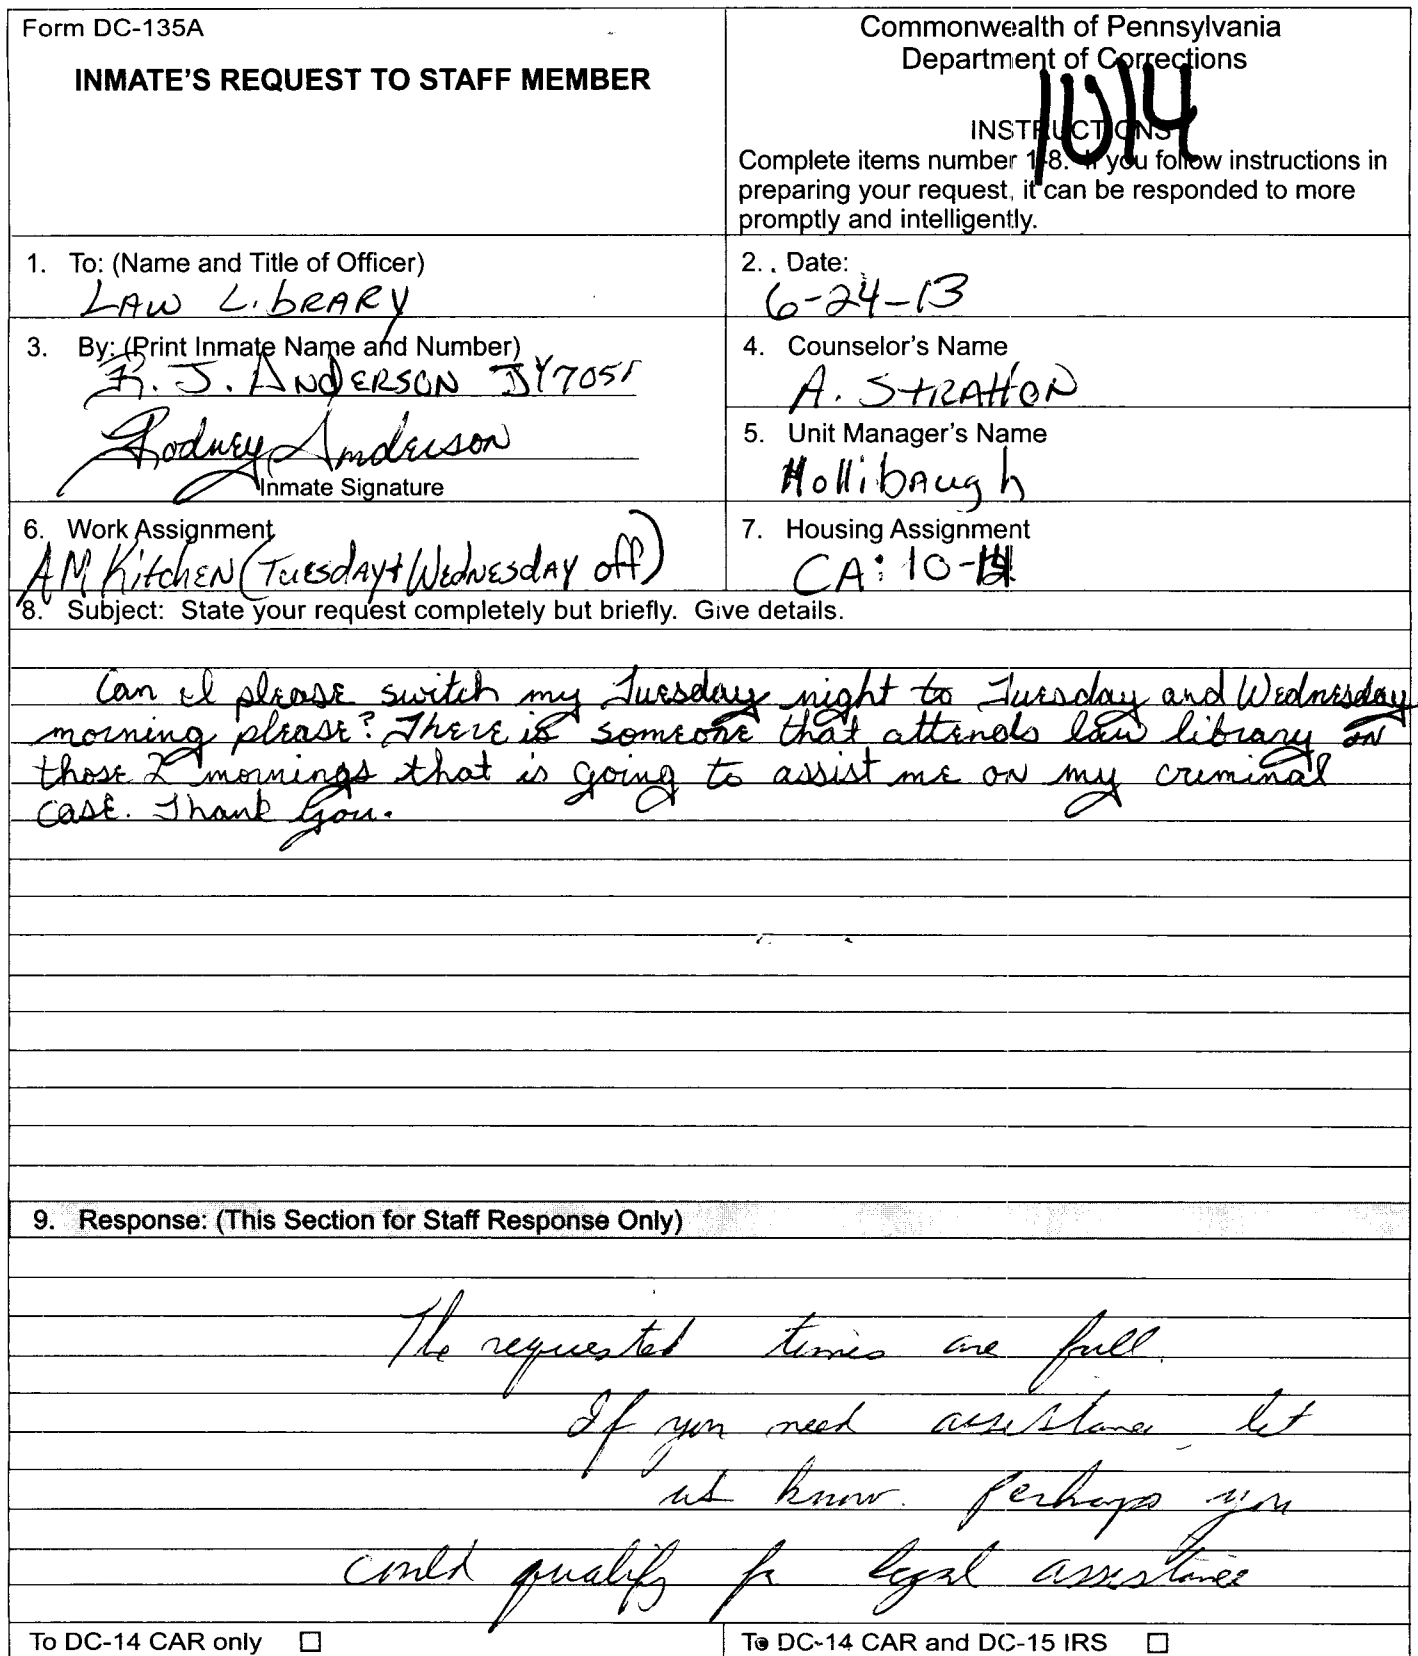 Form DC-135A
INMATE'S REQUEST TO STAFF MEMBER
Commonwealth of Pennsylvania
Department of Corrections
INSTRUCTIONS
Complete items number 1-8. If you follow instructions in
preparing your request, it can be responded to more
promptly and intelligently.
1. To: (Name and Title of Officer)
LAW LibRARY
2. Date:
6-24-13
3. By: (Print Inmate Name and Number)
R. J. ANDERSON JY7051
Rodney Anderson
Inmate Signature
4. Counselor's Name
A. STRATTON
5. Unit Manager's Name
Hollibaugh
6. Work Assignment
AM Kitchen (Tuesday + Wednesday off)
7. Housing Assignment
CA: 10-
8. Subject: State your request completely but briefly. Give details.
Can I please switch my Tuesday night to Tuesday and Wednesday
morning please? There is someone that attends law library on
those 2 mornings that is going to assist me on my criminal
case. Thank You.
9. Response: (This Section for Staff Response Only)
The requested times are full.
If you need assistance, let
us know. Perhaps you
could qualify for legal assistance
To DC-14 CAR only ☐
To DC-14 CAR and DC-15 IRS ☐